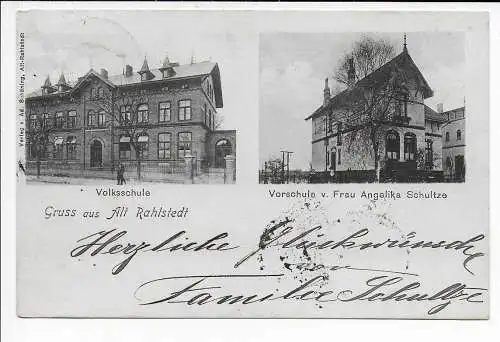 Verlag v. Ad. Schöning, Alt-Rahlstedt.
Volksschule
Vorschule v. Frau Angelika Schultze
Gruss aus Alt Rahlstedt
Herzliche Glückwünsche
von
Familie Schultze.